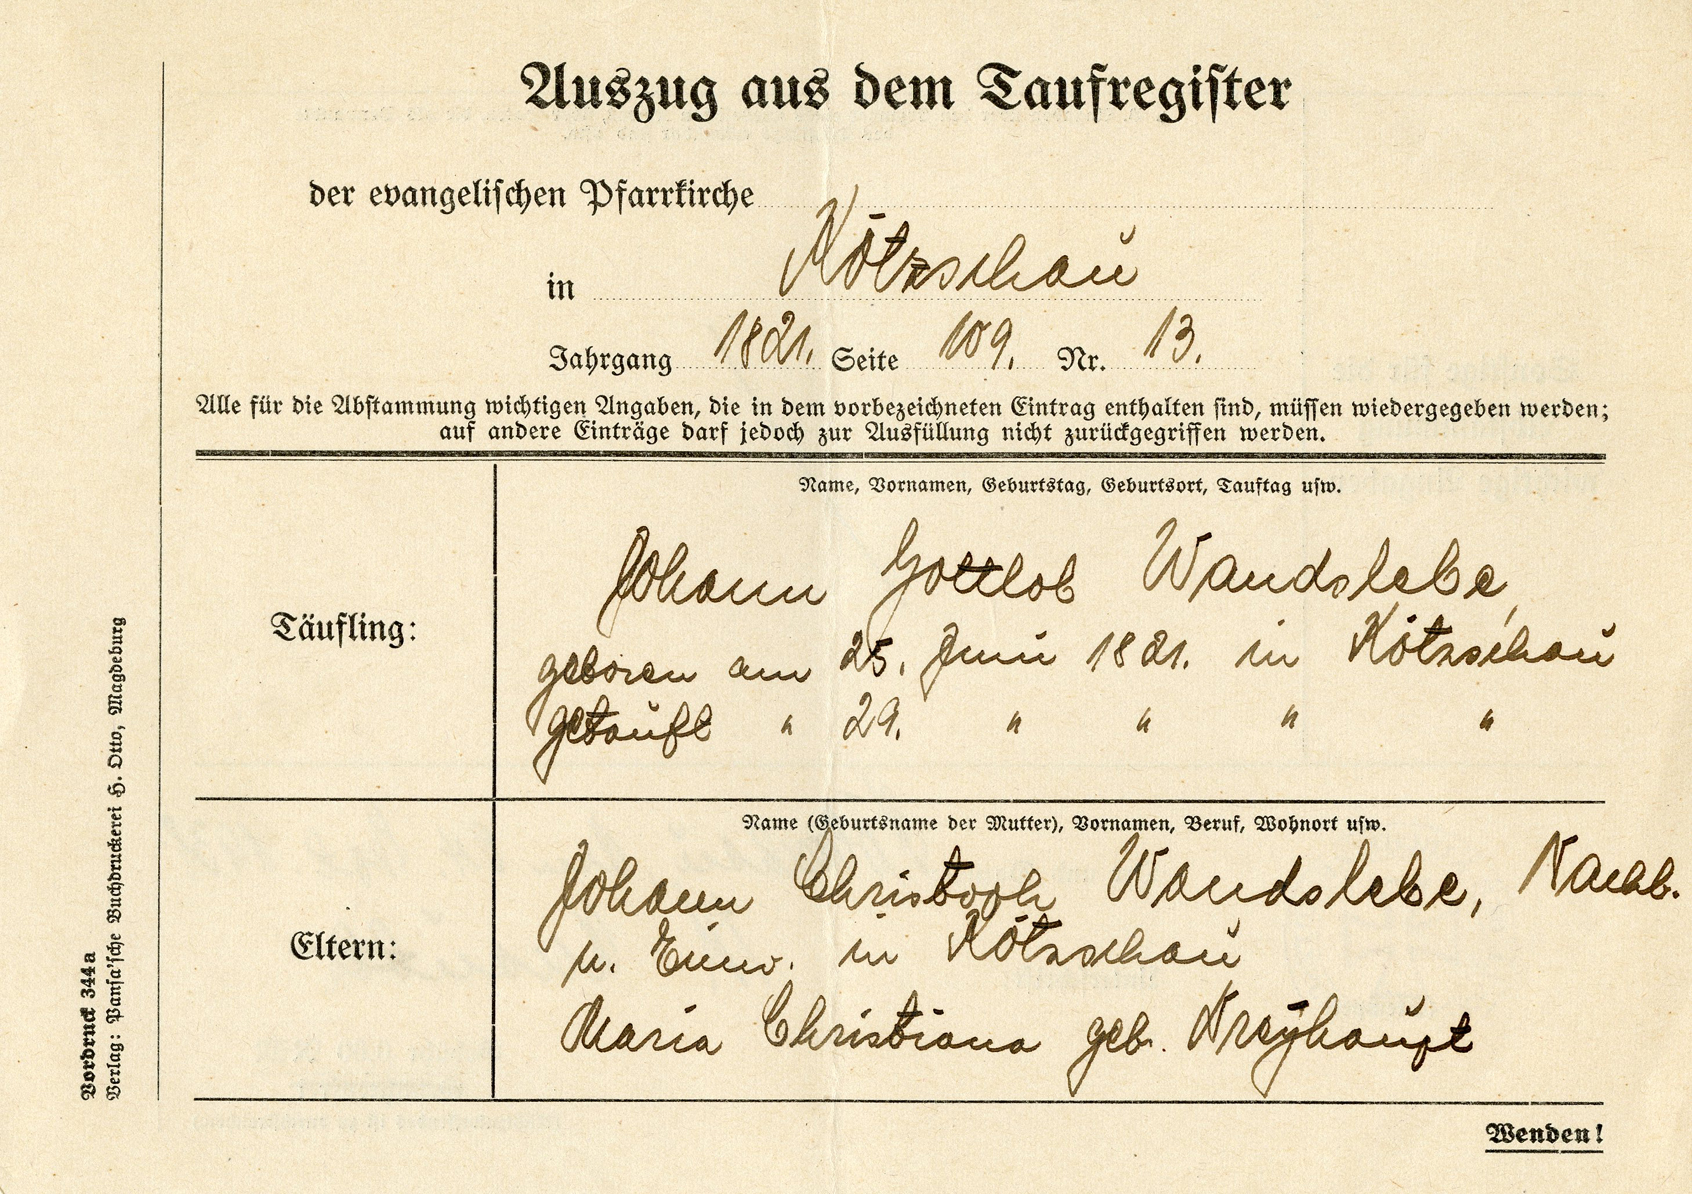 Auszug aus dem Taufregister
der evangelischen Pfarrkirche
in Kötzschau
Jahrgang 1821. Seite 109. Nr. 13.
Alle für die Abstammung wichtigen Angaben, die in dem vorbezeichneten Eintrag enthalten sind, müssen wiedergegeben werden;
auf andere Einträge darf jedoch zur Ausfüllung nicht zurückgegriffen werden.
Name, Vornamen, Geburtstag, Geburtsort, Tauftag usw.
Täufling:
Johann Gottlob Wandslebe,
geboren am 25. Juni 1821. in Kötzschau
getauft " 29. " " " "
Name (Geburtsname der Mutter), Vornamen, Beruf, Wohnort usw.
Eltern:
Johann Christoph Wandslebe, Nachb.
u. Einw. in Kötzschau
Maria Christiana geb. Kreÿhaupt
Wenden!
Vordruck 344a
Verlag: Pansa'sche Buchdruckerei H. Otto, Magdeburg